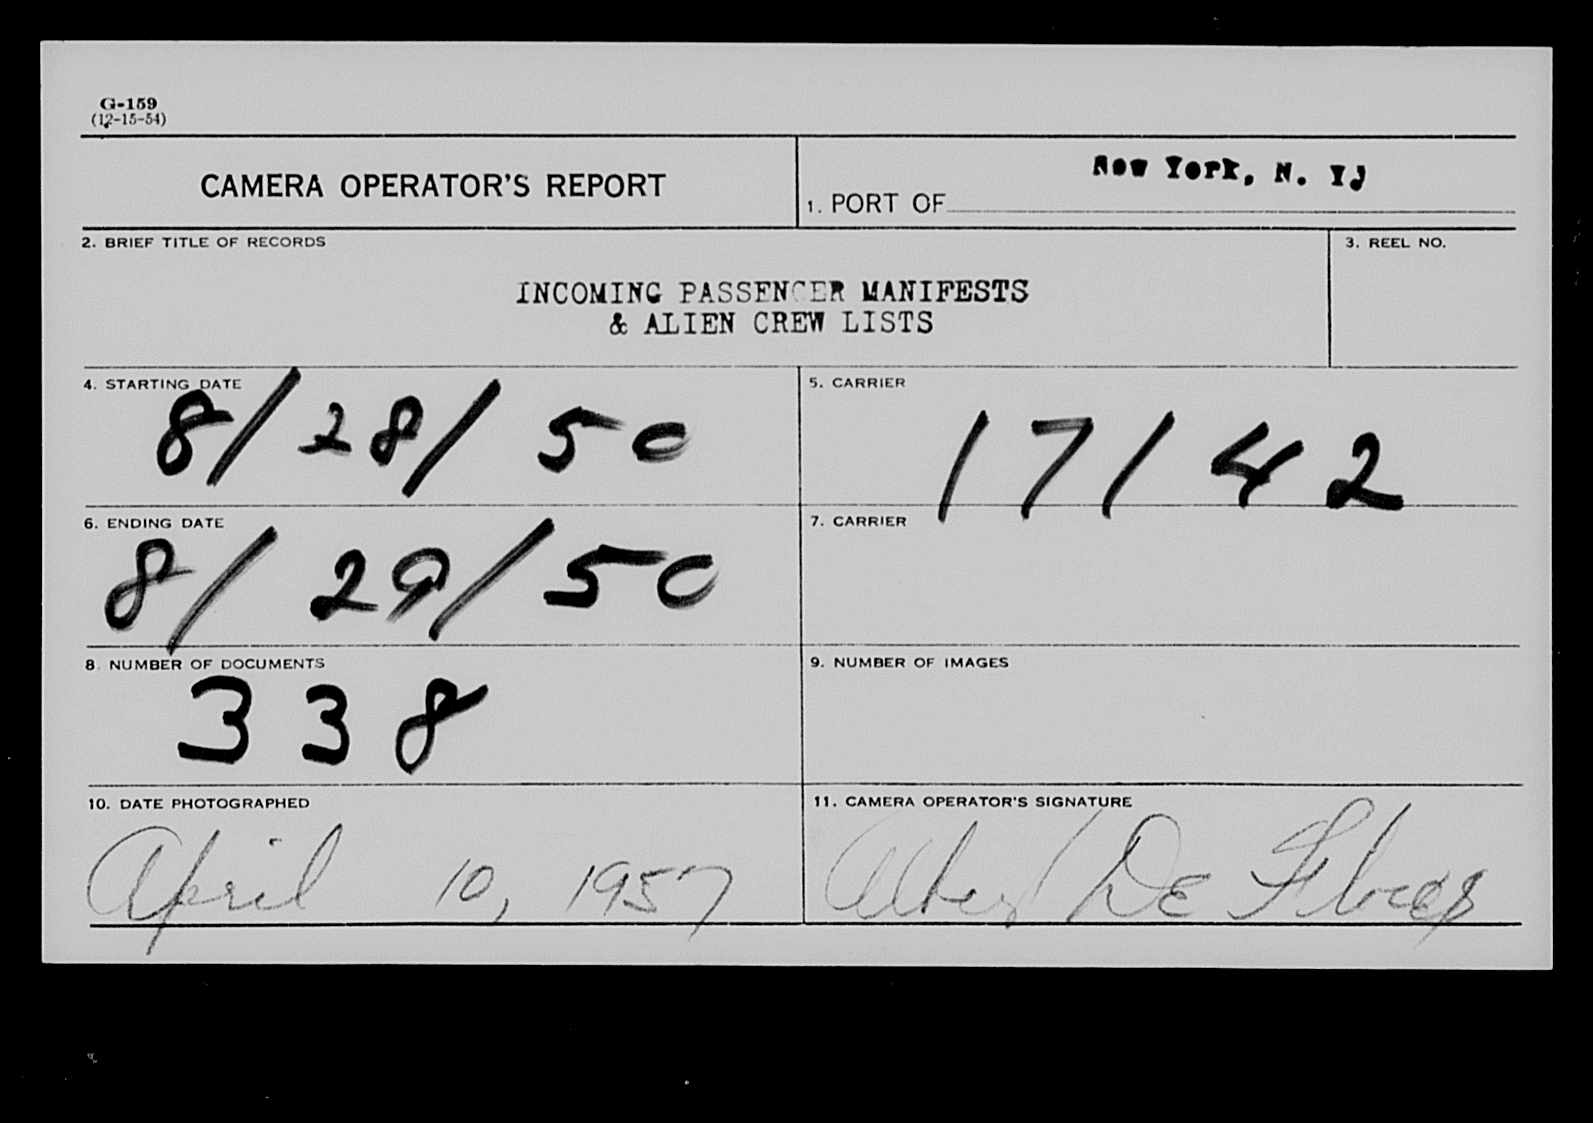 G-159
(12-15-54)
CAMERA OPERATOR'S REPORT
1. PORT OF New York, N. Y.
2. BRIEF TITLE OF RECORDS
3. REEL NO.
INCOMING PASSENGER MANIFESTS
& ALIEN CREW LISTS
4. STARTING DATE
8/28/50
5. CARRIER
17142
6. ENDING DATE
8/29/50
7. CARRIER
8. NUMBER OF DOCUMENTS
338
9. NUMBER OF IMAGES
10. DATE PHOTOGRAPHED
April 10, 1957
11. CAMERA OPERATOR'S SIGNATURE
De